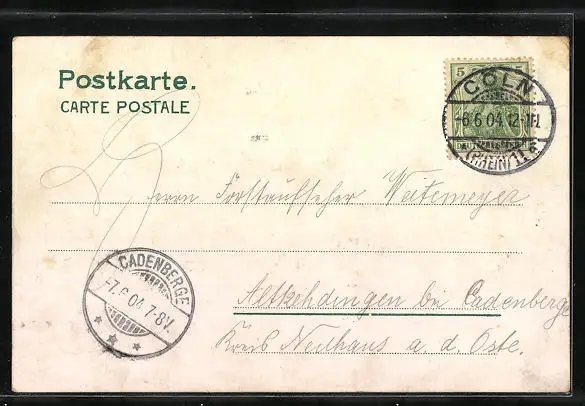 Postkarte.
CARTE POSTALE
5 5
CÖLN
6.6.04.12-1N.
(RHEIN) 1
Herrn Forstaufseher Weitemeyer
CADENBERGE
-7.6.04.7-8V.
Altkehdingen bei Cadenberge
Kreis Neuhaus a. d. Oste.